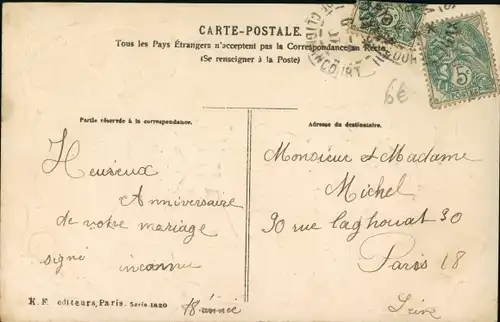 CARTE-POSTALE.
Tous les Pays Étrangers n'acceptent pas la Correspondance au Recto
(Se renseigner à la Poste)
6€
5c
Partie réservée à la correspondance.
Heureux
Anniversaire
de votre mariage
signé inconnu
18 année
K. F. editeurs, Paris. Serie 1820
Adresse du destinataire.
Monsieur et Madame
Michel
30 rue laghouat 30
Paris 18
Seine